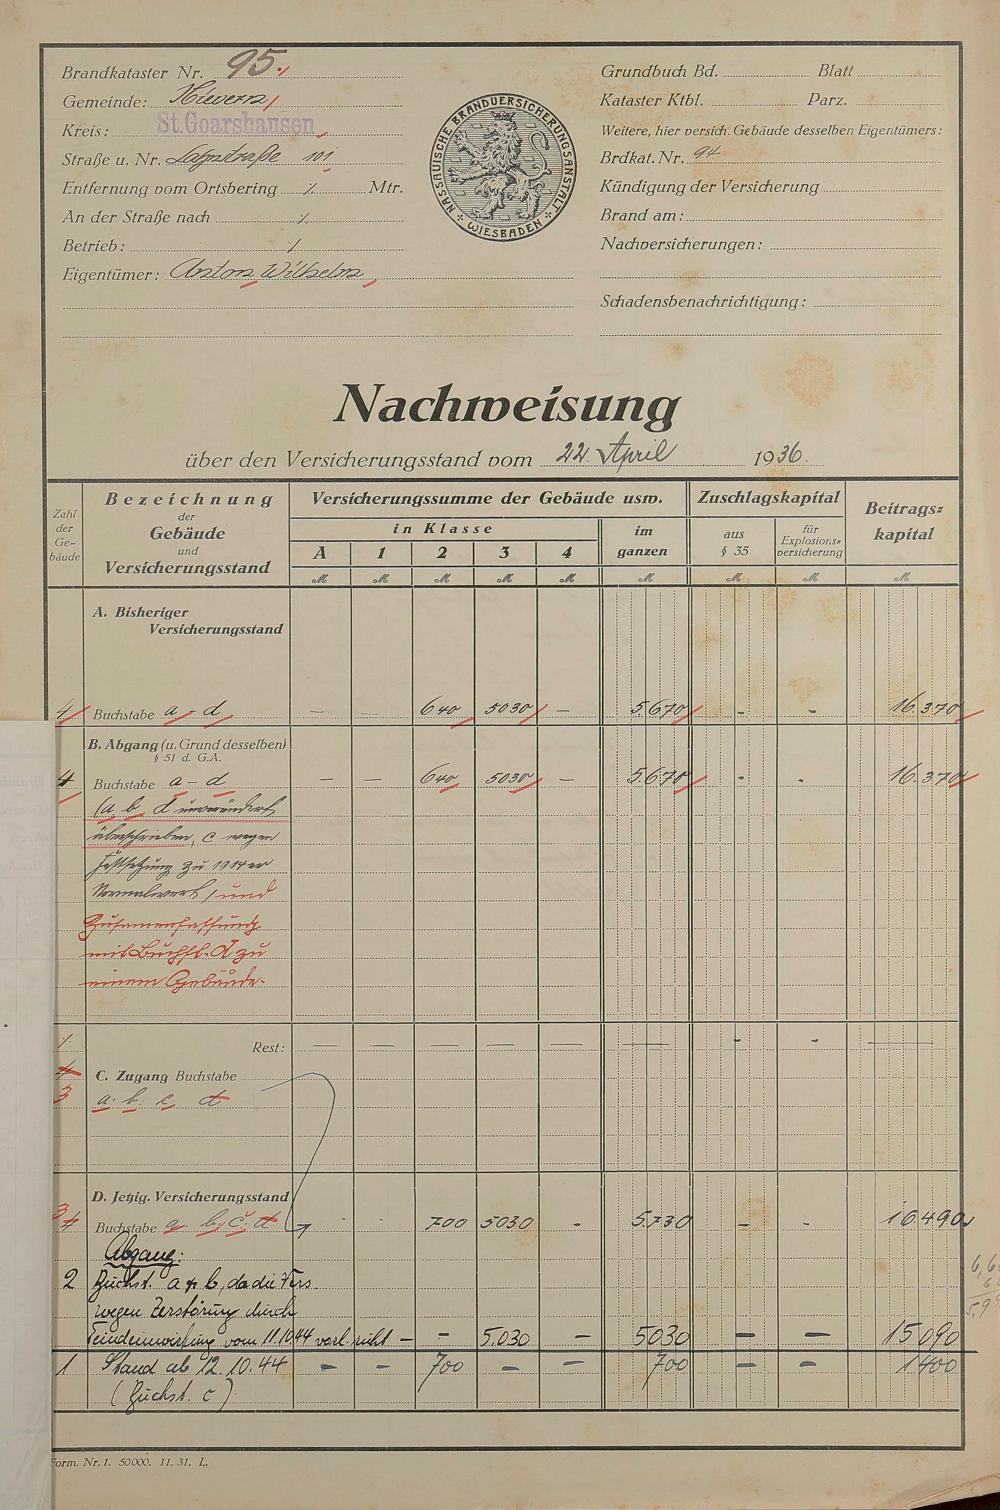 Brandkataster Nr. 95.
Gemeinde: Nievern
Kreis: St. Goarshausen
Straße u. Nr. Lahnstraße 101
Entfernung vom Ortsbering ./. Mtr.
An der Straße nach ./.
Betrieb: ./.
Eigentümer: Anton Wilhelm
NASSAUISCHE BRANDVERSICHERUNGSANSTALT
WIESBADEN
Grundbuch Bd. Blatt
Kataster Ktbl. Parz.
Weitere, hier versich. Gebäude desselben Eigentümers:
Brdkat. Nr. 94
Kündigung der Versicherung
Brand am:
Nachversicherungen:
Schadensbenachrichtigung:
Nachweisung
über den Versicherungsstand vom 22. April 1936.
Zahl der Ge-bäude
Bezeichnung der Gebäude und Versicherungsstand
Versicherungssumme der Gebäude usw.
in Klasse
A 1 2 3 4
im ganzen
Zuschlagskapital
aus § 35
für Explosions-versicherung
Beitrags-kapital
M M M M M M M M M
A. Bisheriger
Versicherungsstand
4 Buchstabe a - d — — 640 5030 — 5.670 - - 16.370
B. Abgang (u. Grund desselben)
§ 51 d. G.A.
4 Buchstabe a - d — — 640 5030 — 5.670 - - 16.370
(a, b, d unverändert
überschrieben, c wegen
Festsetzung zu 1914er
Normalwert) und
Zusammenfassung
mit Buchst. d zu
einem Gebäude.
1 Rest: — — — — — — - - —
4 C. Zugang Buchstabe
3 a. b. c. d
D. Jetzig. Versicherungsstand
3 4 Buchstabe a, b, c, d - - 700 5030 - 5.730 - - 16.490
Abgang:
2 Buchst. a u. b, da die Vers.
wegen Zerstörung durch
Feindeinwirkung vom 11.10.44 vorl. ruht — - 5.030 — 5030 — — 15090
1 Stand ab 12.10.44 - - 700 - - 700 - - 1400
(Buchst. c)
Form. Nr. 1. 50000. 11. 31. L.